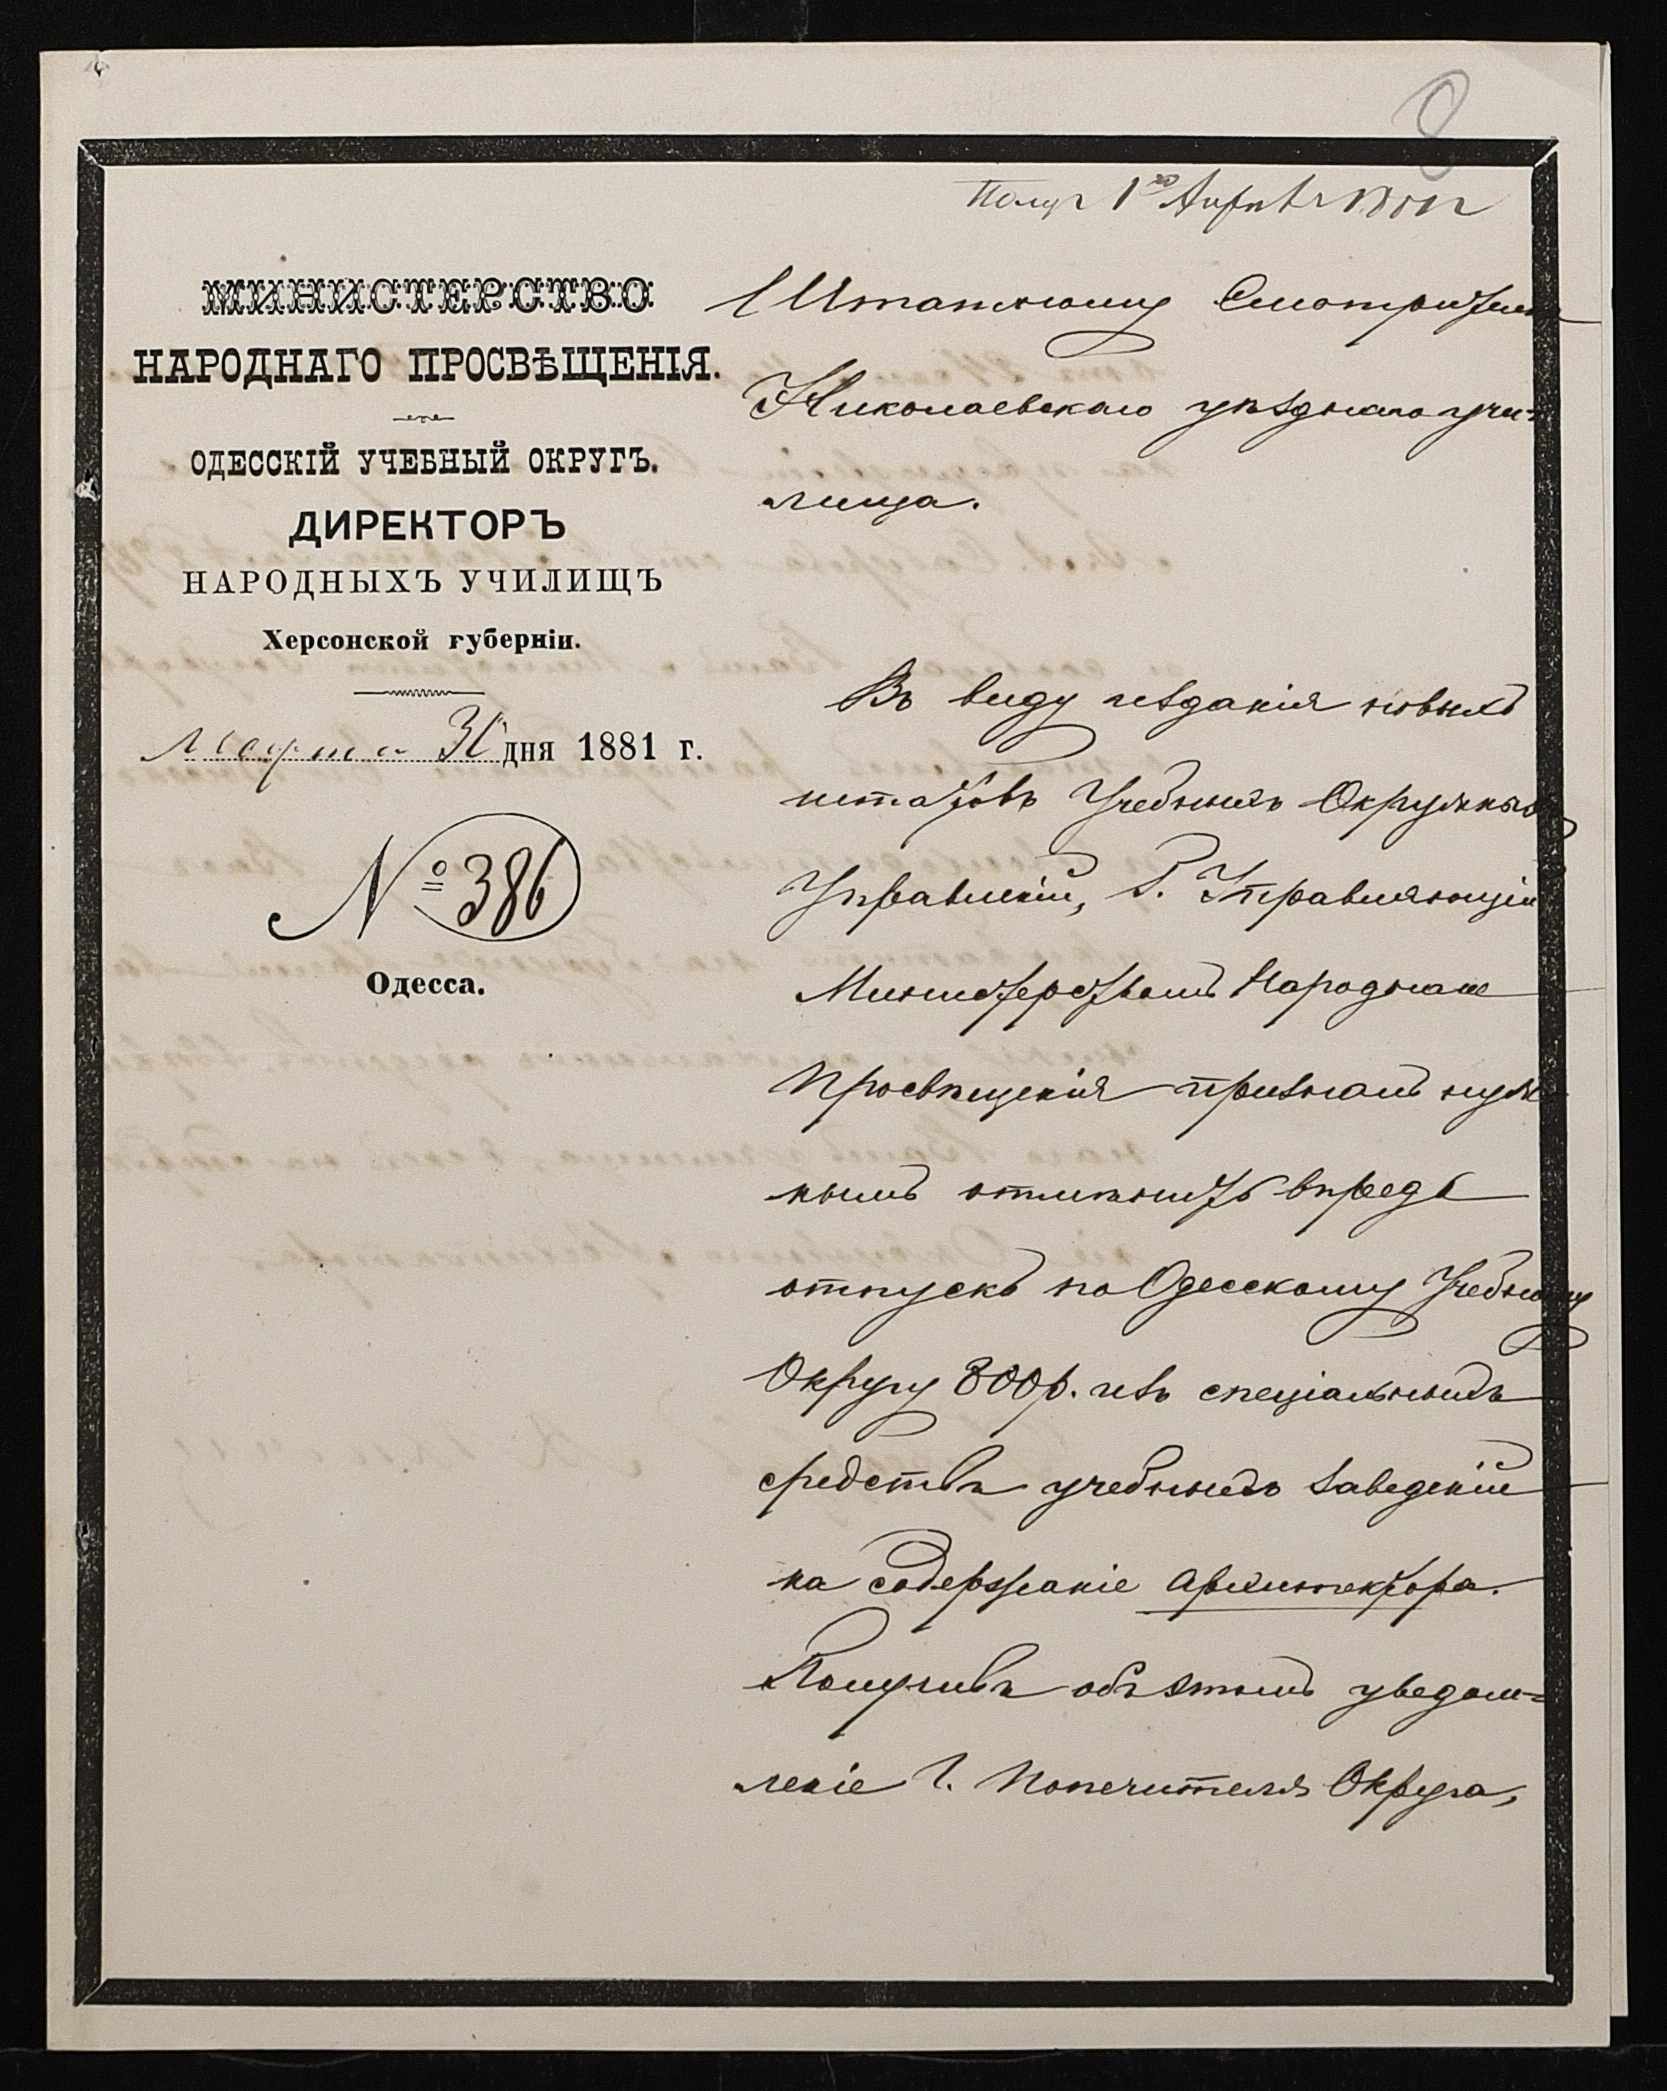 Получ 1го Апрѣля 1881 г
МИНИСТЕРСТВО
НАРОДНАГО ПРОСВѢЩЕНІЯ.
ОДЕССКІЙ УЧЕБНЫЙ ОКРУГЪ.
ДИРЕКТОРЪ
НАРОДНЫХЪ УЧИЛИЩЪ
Херсонской губерніи.
Марта 30 дня 1881 г.
№ 386
Одесса.
Штатному Смотрителю
Николаевскаго уѣзднаго учи-
лища.
Въ виду изданія новыхъ
штатовъ Учебныхъ Окружныхъ
Управленій, Г. Управляющій
Министерствомъ Народнаго
Просвѣщенія призналъ нуж-
нымъ отмѣнить впредь
отпускъ по Одесскому Учебному
Округу 800 р. изъ спеціальныхъ
средствъ учебныхъ заведеній
на содержаніе архитектора.
Получивъ объ этомъ уведом-
леніе Г. Попечителя Округа,